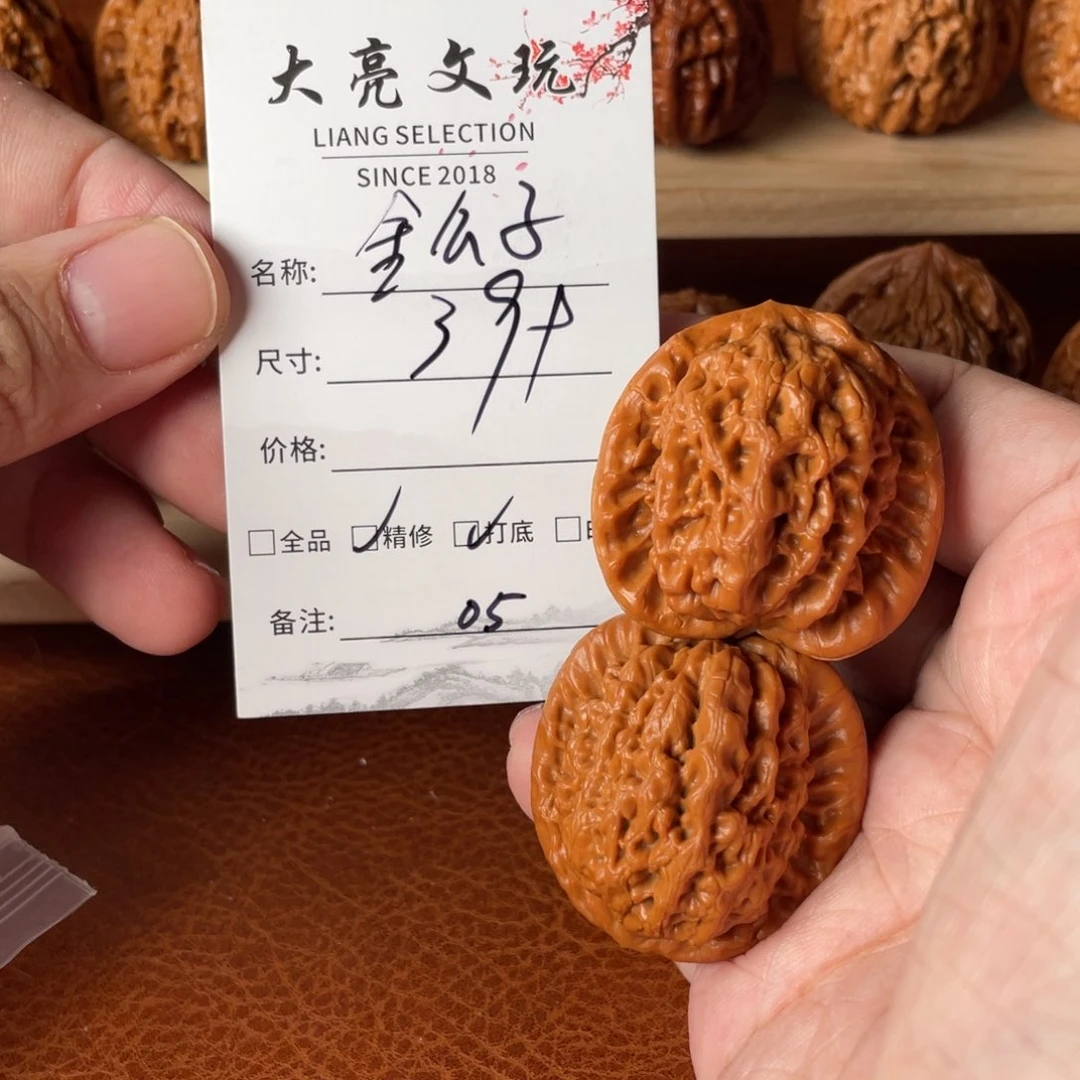 大亮文玩
LIANG SELECTION
SINCE 2018
名称: 金公子
尺寸: 39+
价格:
□全品 ☑精修 ☑打底 □
备注: 05